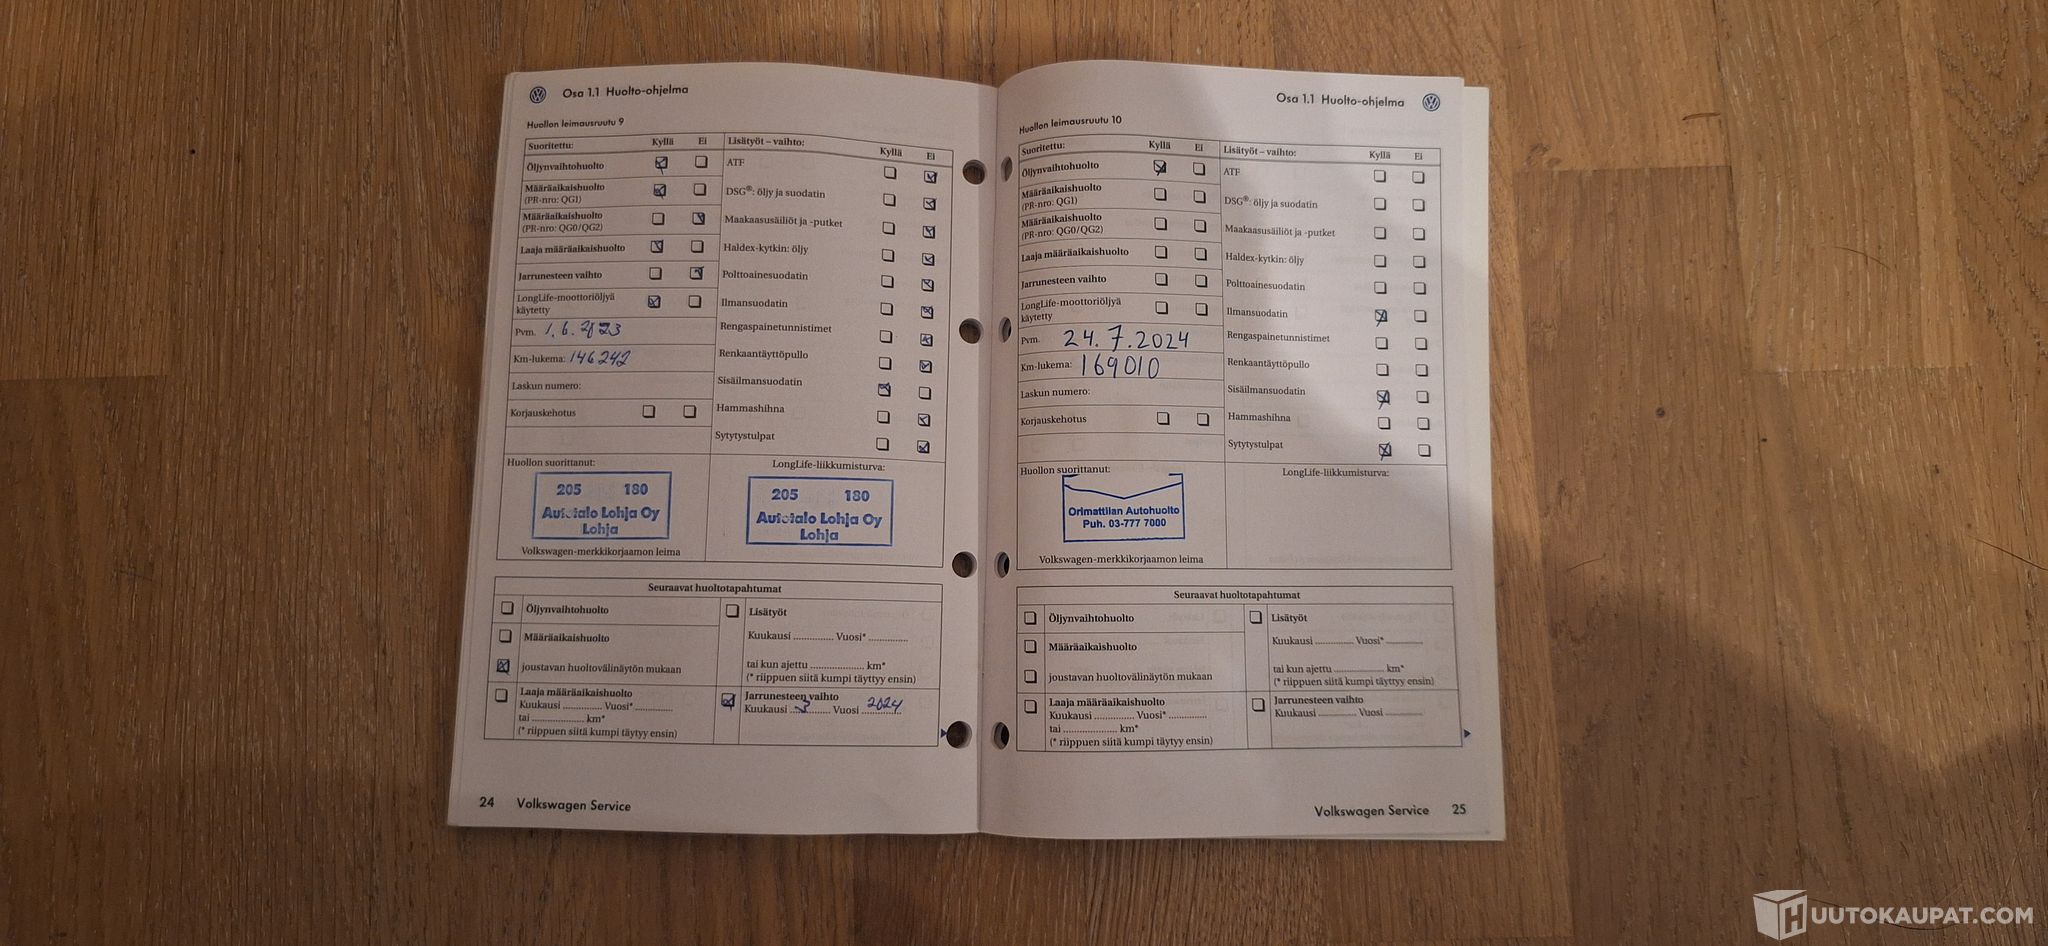 Osa 1.1 Huolto-ohjelma
Huollon leimausruutu 9
Suoritettu: Kyllä Ei
Öljynvaihtohuolto
Määräaikaishuolto
(PR-nro: QG1)
Määräaikaishuolto
(PR-nro: QG0/QG2)
Laaja määräaikaishuolto
Jarrunesteen vaihto
LongLife-moottoriöljyä
käytetty
Pvm. 1.6.2023
Km-lukema: 146242
Laskun numero:
Korjauskehotus
Lisätyöt – vaihto:
Kyllä Ei
ATF
DSG®: öljy ja suodatin
Maakaasusäiliöt ja -putket
Haldex-kytkin: öljy
Polttoainesuodatin
Ilmansuodatin
Rengaspainetunnistimet
Renkaantäyttöpullo
Sisäilmansuodatin
Hammashihna
Sytytystulpat
Huollon suorittanut:
205 180
Autotalo Lohja Oy
Lohja
Volkswagen-merkkikorjaamon leima
LongLife-liikkumisturva:
205 180
Autotalo Lohja Oy
Lohja
Seuraavat huoltotapahtumat
Öljynvaihtohuolto
Määräaikaishuolto
joustavan huoltovälinäytön mukaan
Laaja määräaikaishuolto
Kuukausi .............. Vuosi* ..............
tai .................... km*
(* riippuen siitä kumpi täytyy ensin)
Lisätyöt
Kuukausi .............. Vuosi* ..............
tai kun ajettu .................... km*
(* riippuen siitä kumpi täyttyy ensin)
Jarrunesteen vaihto
Kuukausi 3 Vuosi 2024
24 Volkswagen Service
Osa 1.1 Huolto-ohjelma
Huollon leimausruutu 10
Suoritettu: Kyllä Ei
Öljynvaihtohuolto
Määräaikaishuolto
(PR-nro: QG1)
Määräaikaishuolto
(PR-nro: QG0/QG2)
Laaja määräaikaishuolto
Jarrunesteen vaihto
LongLife-moottoriöljyä
käytetty
Pvm. 24.7.2024
Km-lukema: 169010
Laskun numero:
Korjauskehotus
Lisätyöt – vaihto: Kyllä Ei
ATF
DSG®: öljy ja suodatin
Maakaasusäiliöt ja -putket
Haldex-kytkin: öljy
Polttoainesuodatin
Ilmansuodatin
Rengaspainetunnistimet
Renkaantäyttöpullo
Sisäilmansuodatin
Hammashihna
Sytytystulpat
Huollon suorittanut:
Orimattilan Autohuolto
Puh. 03-777 7000
Volkswagen-merkkikorjaamon leima
LongLife-liikkumisturva:
Seuraavat huoltotapahtumat
Öljynvaihtohuolto
Määräaikaishuolto
joustavan huoltovälinäytön mukaan
Laaja määräaikaishuolto
Kuukausi .............. Vuosi* ..............
tai .................... km*
(* riippuen siitä kumpi täytyy ensin)
Lisätyöt
Kuukausi .............. Vuosi* ..............
tai kun ajettu .................... km*
(* riippuen siitä kumpi täyttyy ensin)
Jarrunesteen vaihto
Kuukausi .............. Vuosi ..............
Volkswagen Service 25
HUUTOKAUPAT.COM